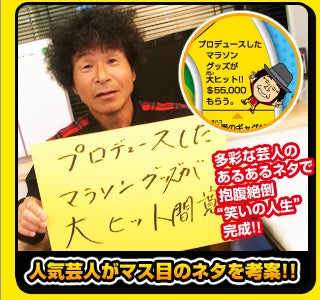 プロデュースした
マラソン
グッズが
大ヒット!!
$55,000
もらう。
プロデュースした
マラソングッズが
大ヒット間
多彩な芸人の
あるあるネタで
抱腹絶倒
“笑いの人生”
完成!!
人気芸人がマス目のネタを考案!!